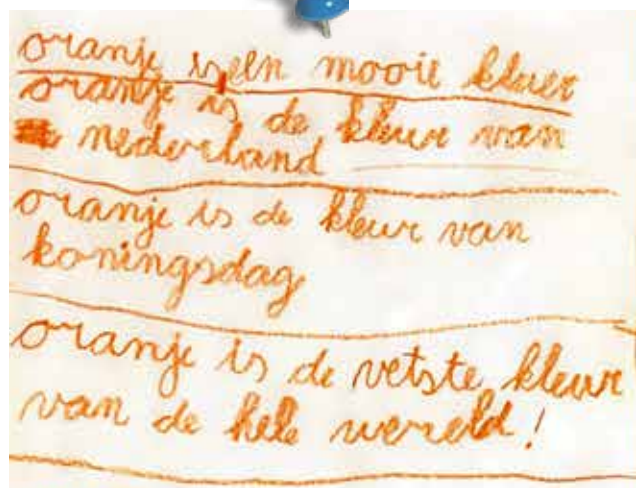 oranje is een mooie kluer
oranje is de kleur van
nederland
oranje is de kleur van
koningsdag
oranje is de vetste kleur
van de hele wereld!